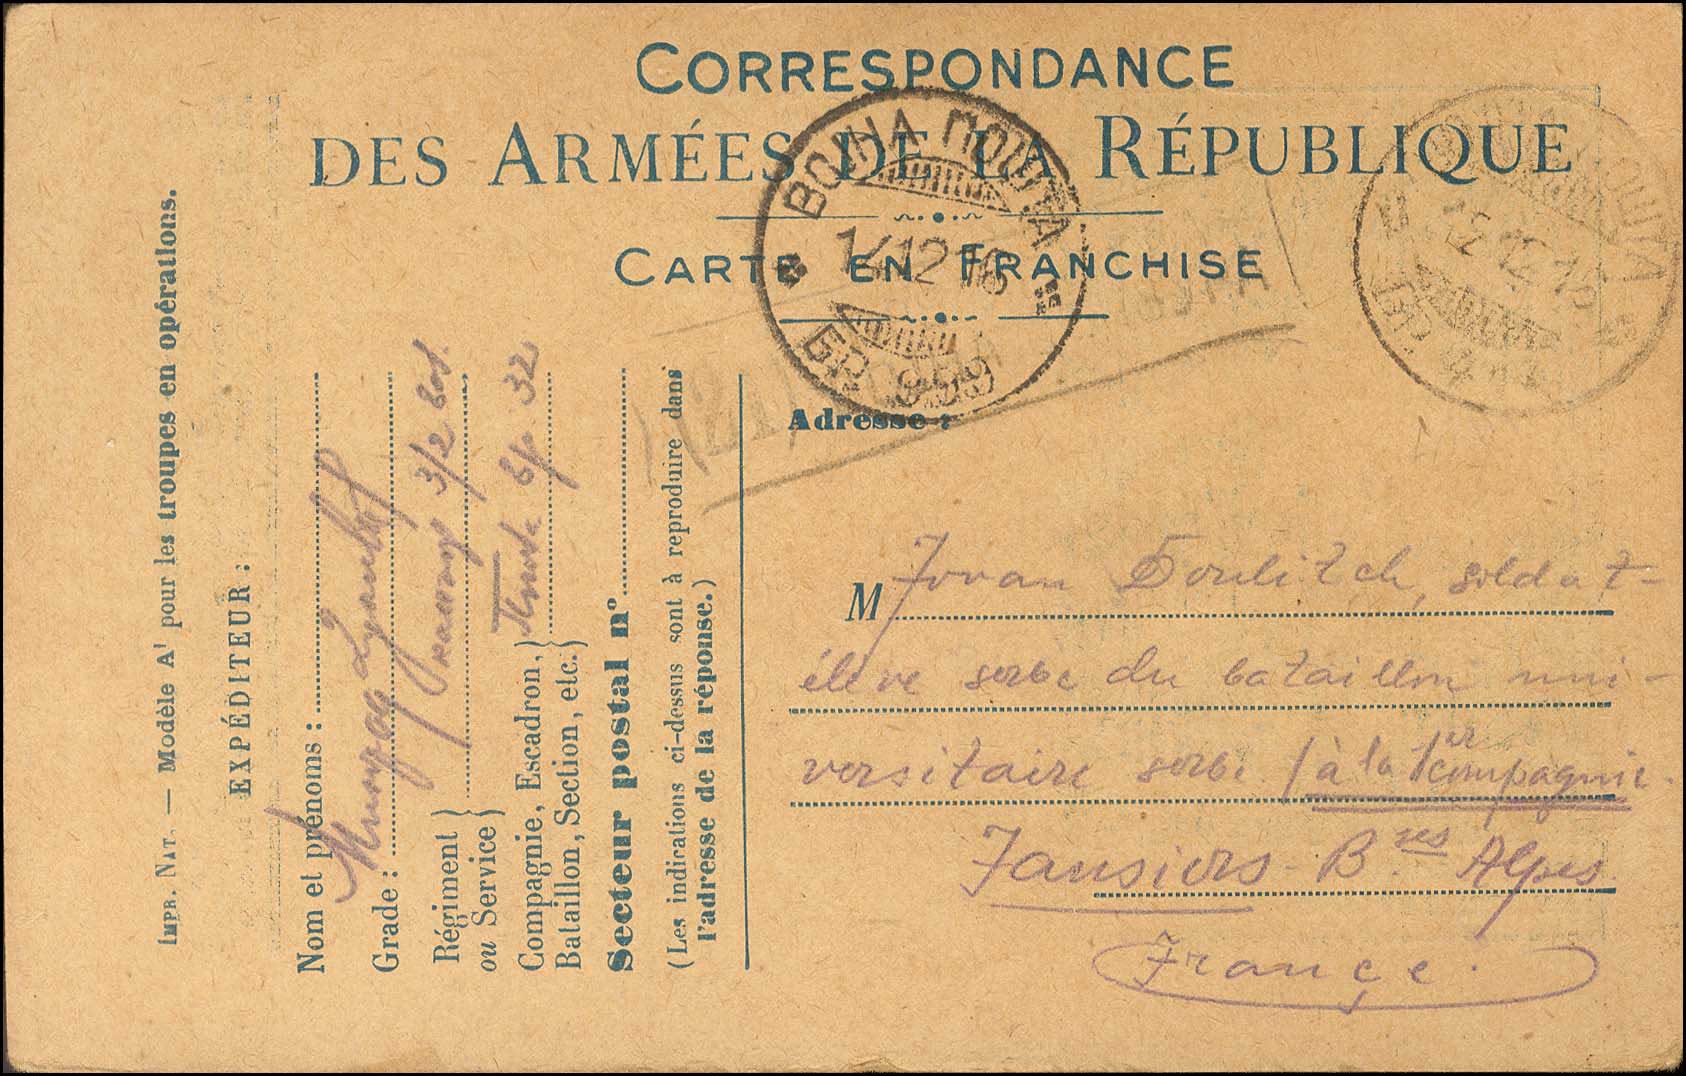 CORRESPONDANCE
DES ARMÉES DE LA RÉPUBLIQUE
CARTE EN FRANCHISE
ВОЈНА ПОШТА
14 12 16
БР. 999
IMPR. NAT. — Modèle A¹ pour les troupes en opérations.
EXPÉDITEUR :
Nom et prénoms :
Grade :
Régiment
ou Service
3/2
Compagnie, Escadron,
Bataillon, Section, etc.
Пошта бр. 32
Secteur postal n°
(Les indications ci-dessus sont à reproduire dans
l'adresse de la réponse.)
Adresse :
M Jovan Doulitch, soldat-
élève serbe du bataillon uni-
versitaire serbe (à la 1er compagnie.
Jausiers - B.ses Alpes.
France.